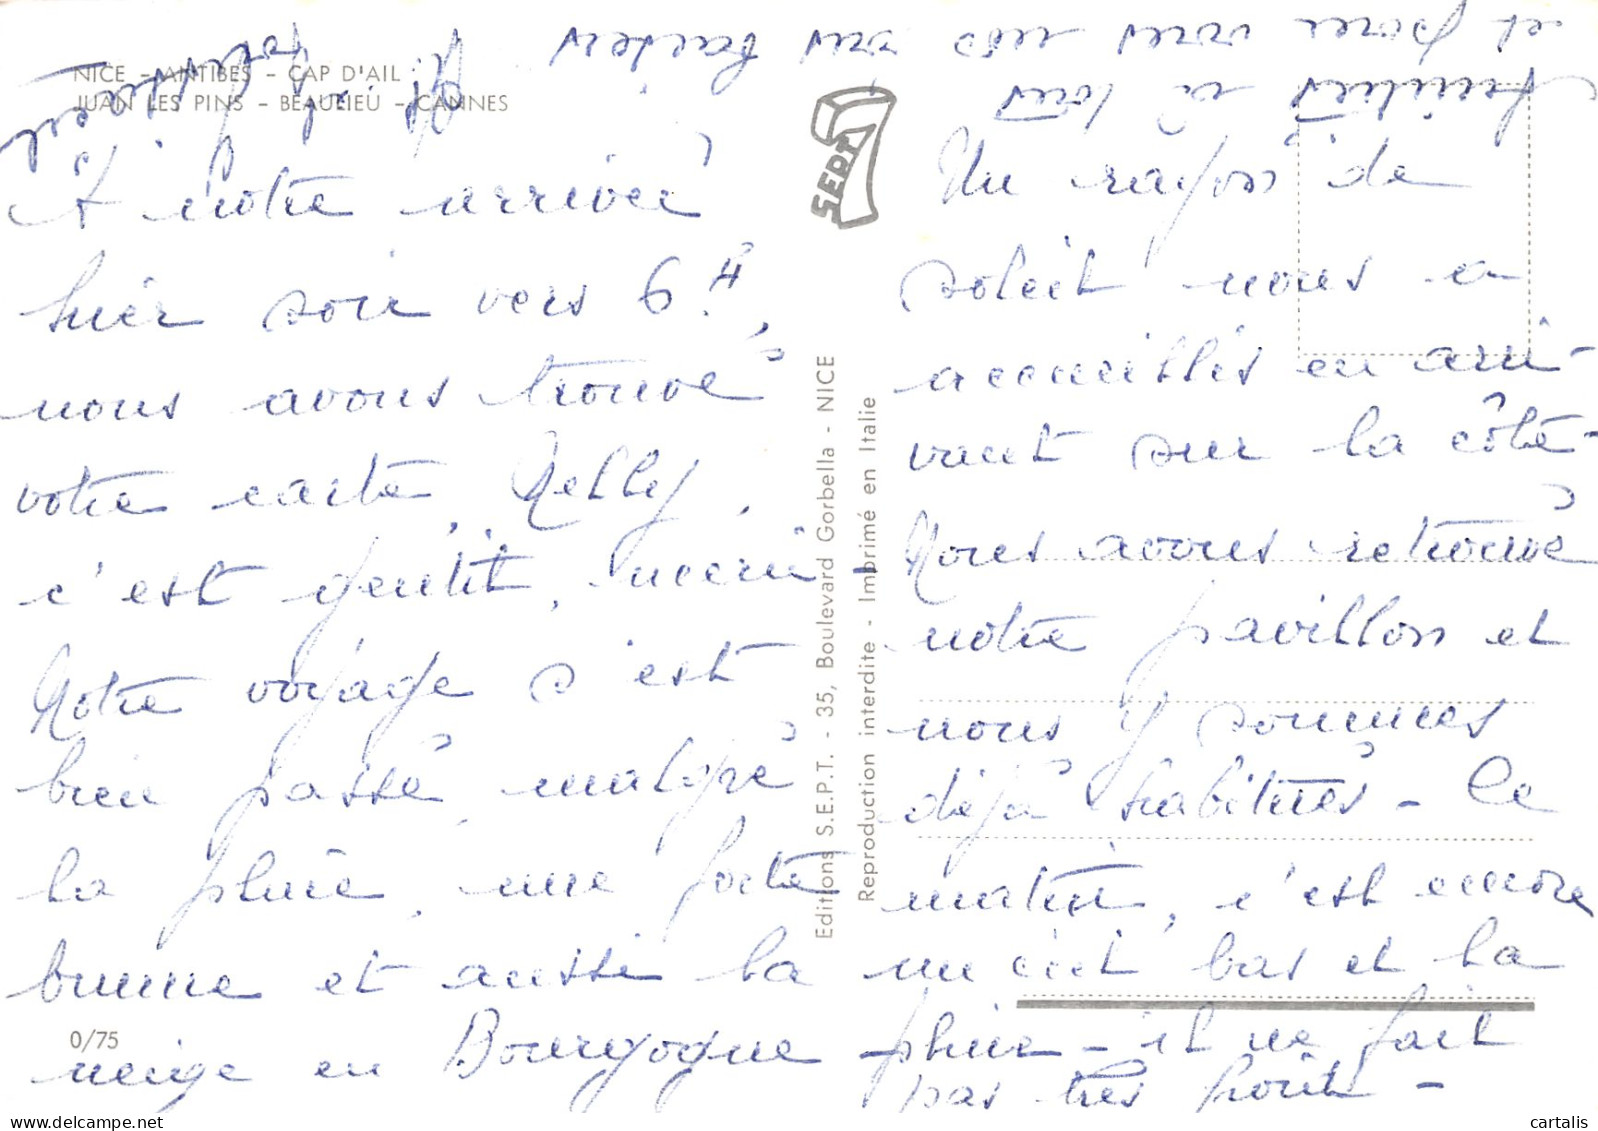 NICE - ANTIBES - CAP D'AIL
JUAN LES PINS - BEAULIEU - CANNES
A notre arrivée
hier soir vers 6H,
nous avons trouvé
votre carte, Nelly,
c'est gentil, merci -
Notre voyage s'est
bien passé, malgré
la pluie, une forte
brume et aussi la
neige en Bourgogne -
0/75
SEPT
Editions S.E.P.T. - 35, Boulevard Gorbella - NICE
Reproduction interdite - Imprimé en Italie
Un rayon de
soleil nous a
accueillis en arri-
vant sur la côte -
Nous avons retrouvé
notre pavillon et
nous y sommes
déjà habitués - Ce
matin, c'est encore
un ciel bas et la
pluie - il ne fait
pas très froid -
et pour vous nos bons baisers
Amitiés à tous
cartalis